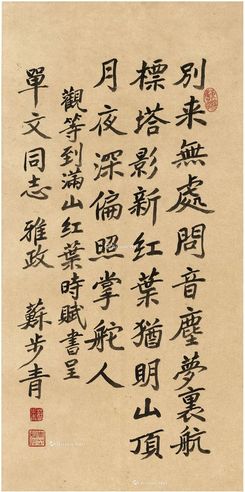 別来無處問音塵夢裏航
標塔影新紅葉猶明山頂
月夜深偏照掌舵人
觀等到滿山紅葉時賦書呈
單文同志雅政
蘇步青